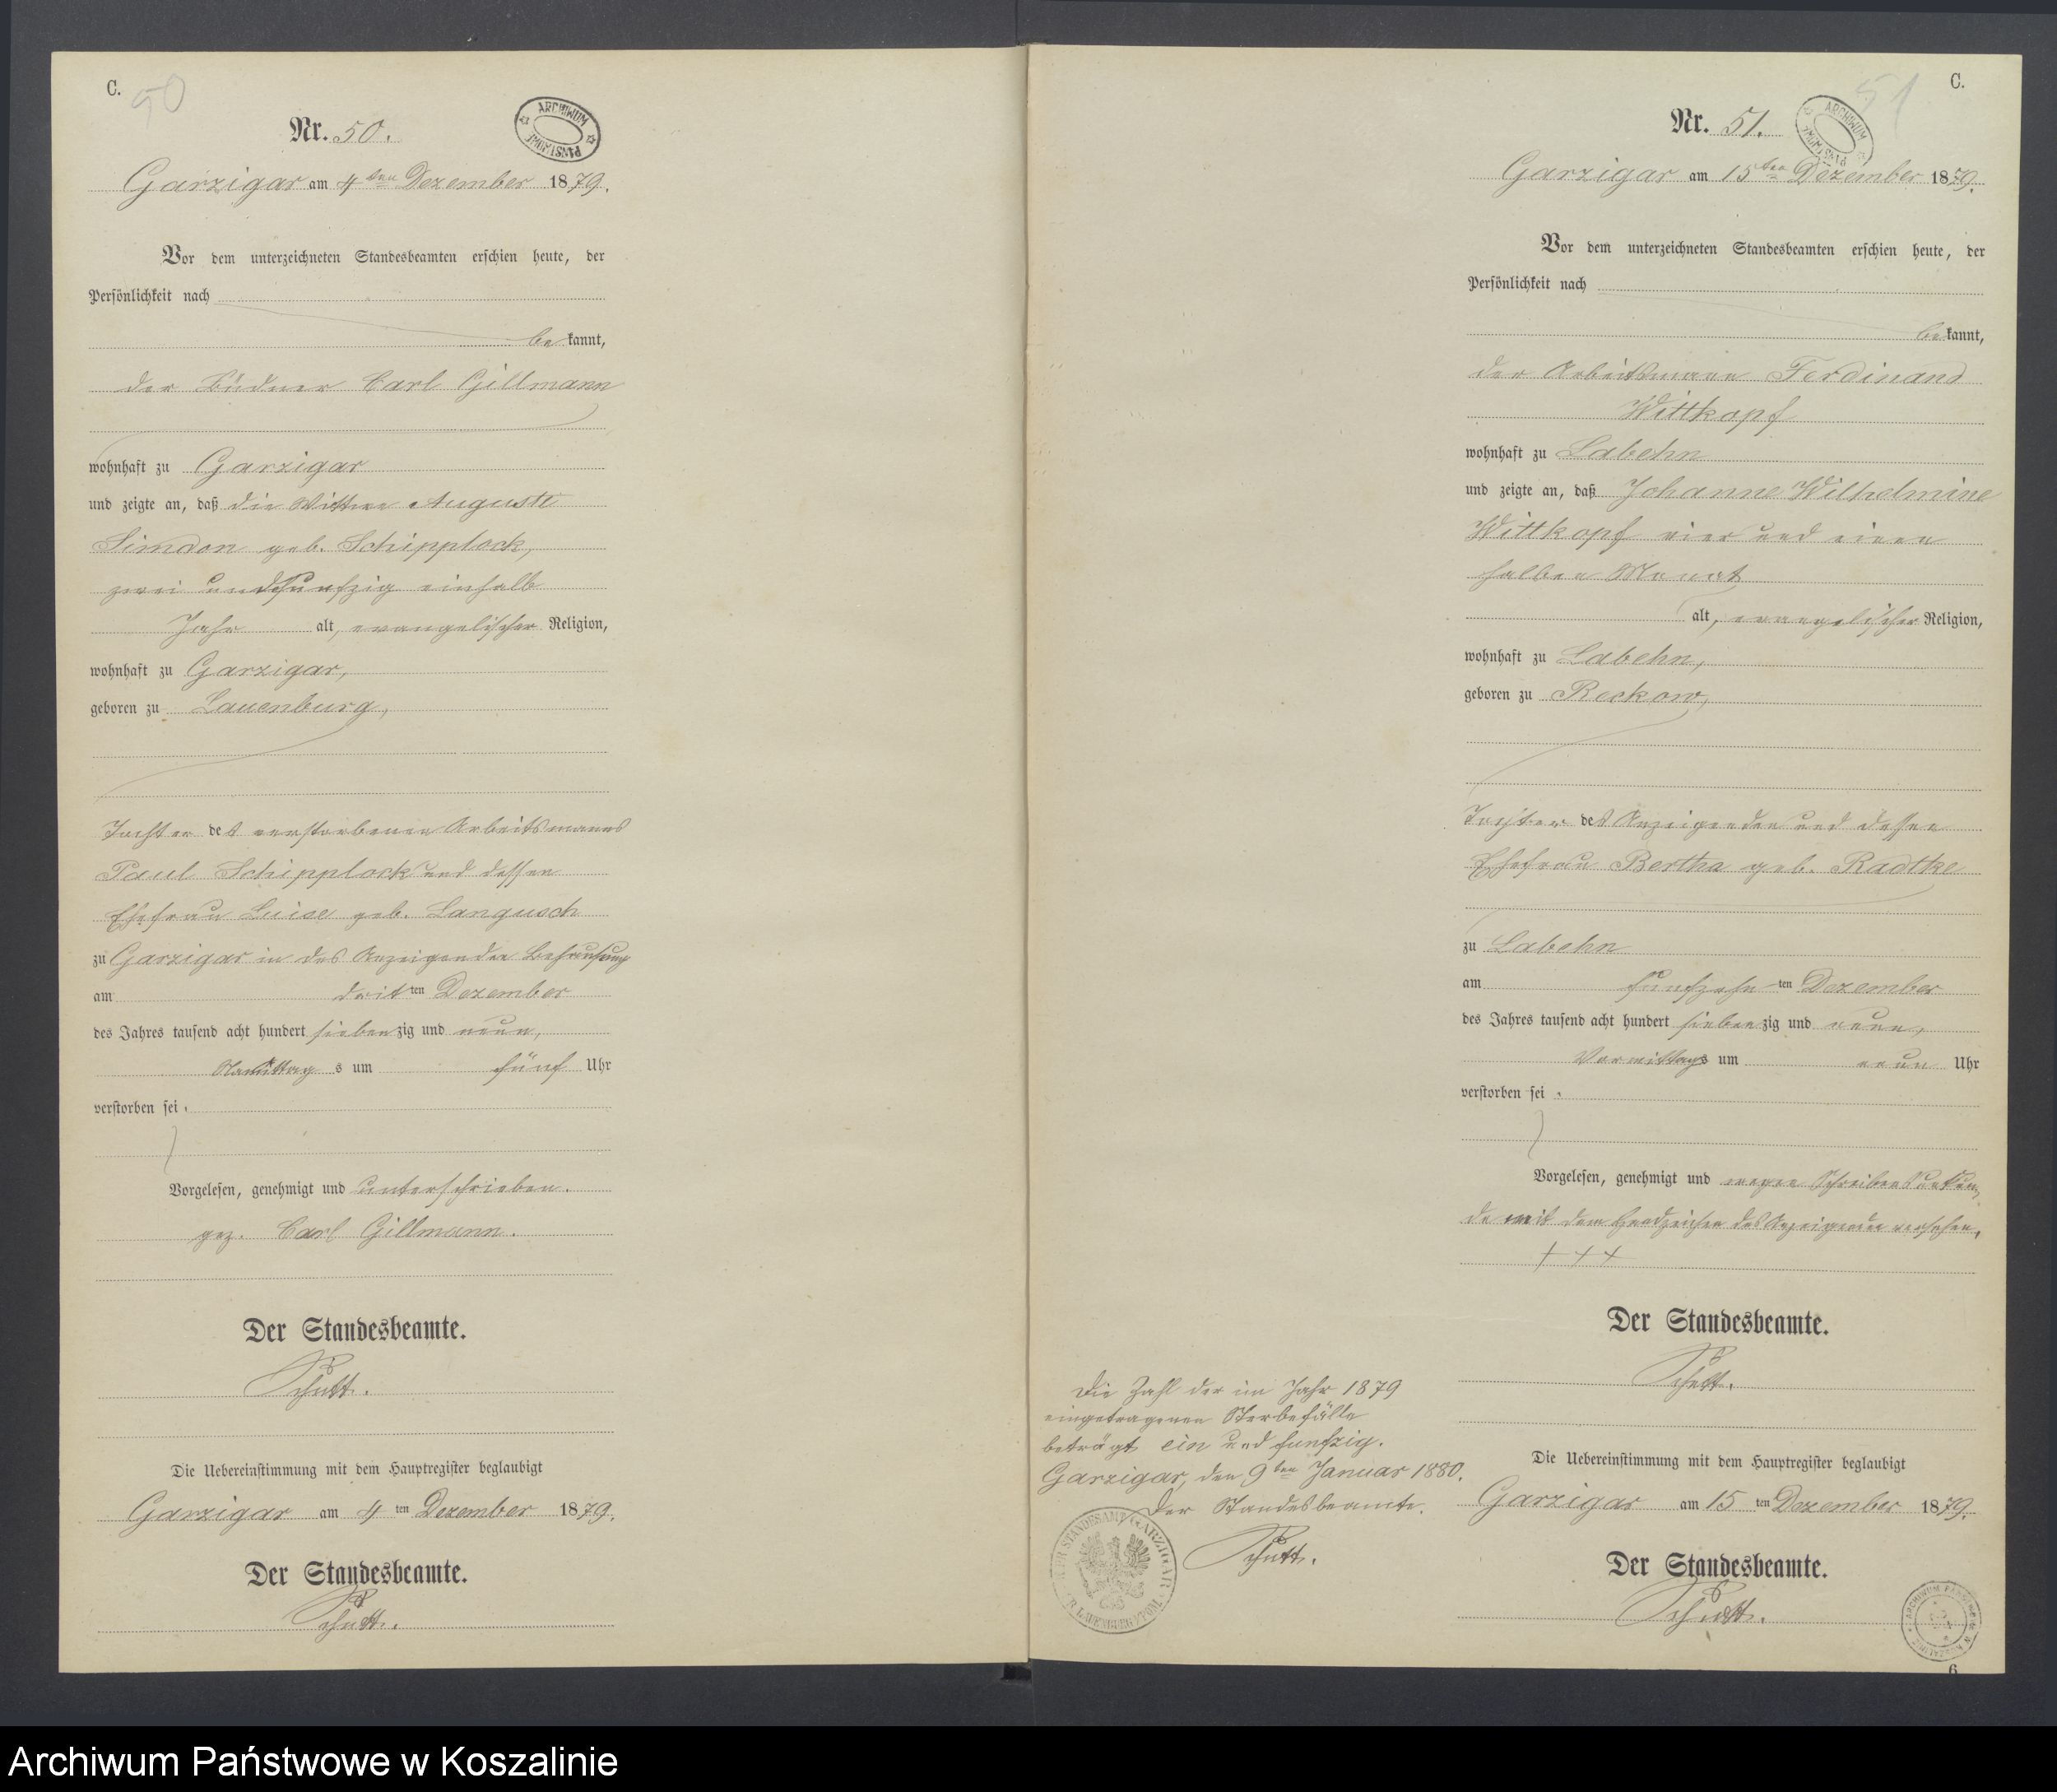 C.
50
Nr. 50.
ARCHIWUM
PAŃSTWOWE
Garzigar am 4ten Dezember 1879.
Vor dem unterzeichneten Standesbeamten erschien heute, der
Persönlichkeit nach
bekannt,
der Büdner Carl Gillmann
wohnhaft zu Garzigar
und zeigte an, daß die Wittwe Auguste
Simdon geb. Schipplock,
zwei und fünfzig einhalb
Jahr alt, evangelischer Religion,
wohnhaft zu Garzigar,
geboren zu Lauenburg,
Tochter des verstorbenen Arbeitsmanns
Paul Schipplock und dessen
Ehefrau Luise geb. Langusch
zu Garzigar in des Anzeigenden Behausung
am dritten Dezember
des Jahres tausend acht hundert siebenzig und neun,
Nachmittags um fünf Uhr
verstorben sei.
Vorgelesen, genehmigt und unterschrieben.
gez. Carl Gillmann.
Der Standesbeamte.
Schutt.
Die Uebereinstimmung mit dem Hauptregister beglaubigt
Garzigar am 4ten Dezember 1879.
Der Standesbeamte.
Schutt.
C.
51
Nr. 51.
ARCHIWUM
PAŃSTWOWE
Garzigar am 15ten Dezember 1879.
Vor dem unterzeichneten Standesbeamten erschien heute, der
Persönlichkeit nach
bekannt,
der Arbeitsmann Ferdinand
Wittkopf
wohnhaft zu Labehn
und zeigte an, daß Johanne Wilhelmine
Wittkopf vier und einen
halben Monat
alt, evangelischer Religion,
wohnhaft zu Labehn,
geboren zu Reckow,
Tochter des Anzeigenden und dessen
Ehefrau Bertha geb. Radtke
zu Labehn
am fünfzehnten Dezember
des Jahres tausend acht hundert siebenzig und neun,
Vormittags um neun Uhr
verstorben sei.
Vorgelesen, genehmigt und wegen Schreibensunkun-
de mit dem Handzeichen des Anzeigenden versehen,
+++
Der Standesbeamte.
Schutt.
Die Uebereinstimmung mit dem Hauptregister beglaubigt
Garzigar am 15ten Dezember 1879.
Der Standesbeamte.
Schutt.
6
Die Zahl der im Jahr 1879
eingetragenen Sterbefälle
beträgt ein und funfzig.
Garzigar, den 9ten Januar 1880.
Der Standesbeamte.
Schutt.
STANDESAMT GARZIGAR
LAUENBURG I/POM
Archiwum Państwowe w Koszalinie